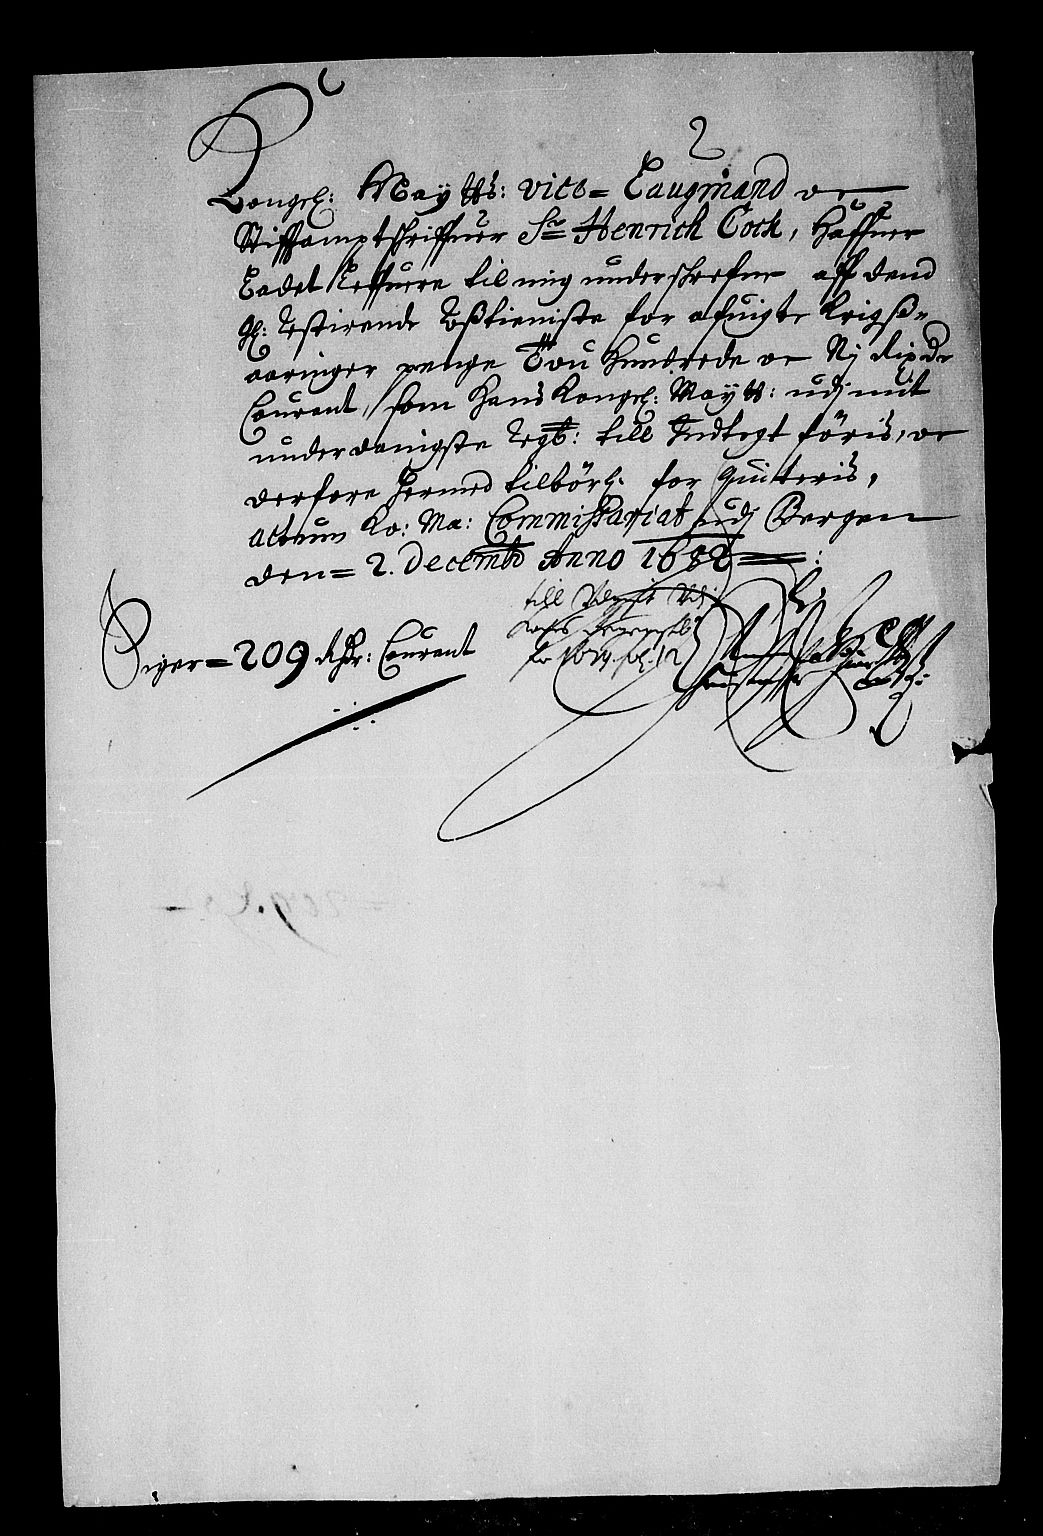 Kongel: Maytts: vice= Laugmand oc
Stifftamptschriffuer Sr Henrich Cock, haffuer
ladet leffuere til mig underschrefne aff dend
gl: resterende Roßtieniste for afuigte Krigß=
aaringer penge Tou Hundrede oc Nj Rixdr
Courant, som Hans Kongel: Maytt: udj mit
underdanigste Regb: till Indtegt föris, oc
derfore hermed tilbörl. for quitteris,
Actum Ko: Ma: Commissariat udj Bergen
den= 2. Decembr Anno 1682
Siger= 209 Rdr: Courant
till
fol. 12